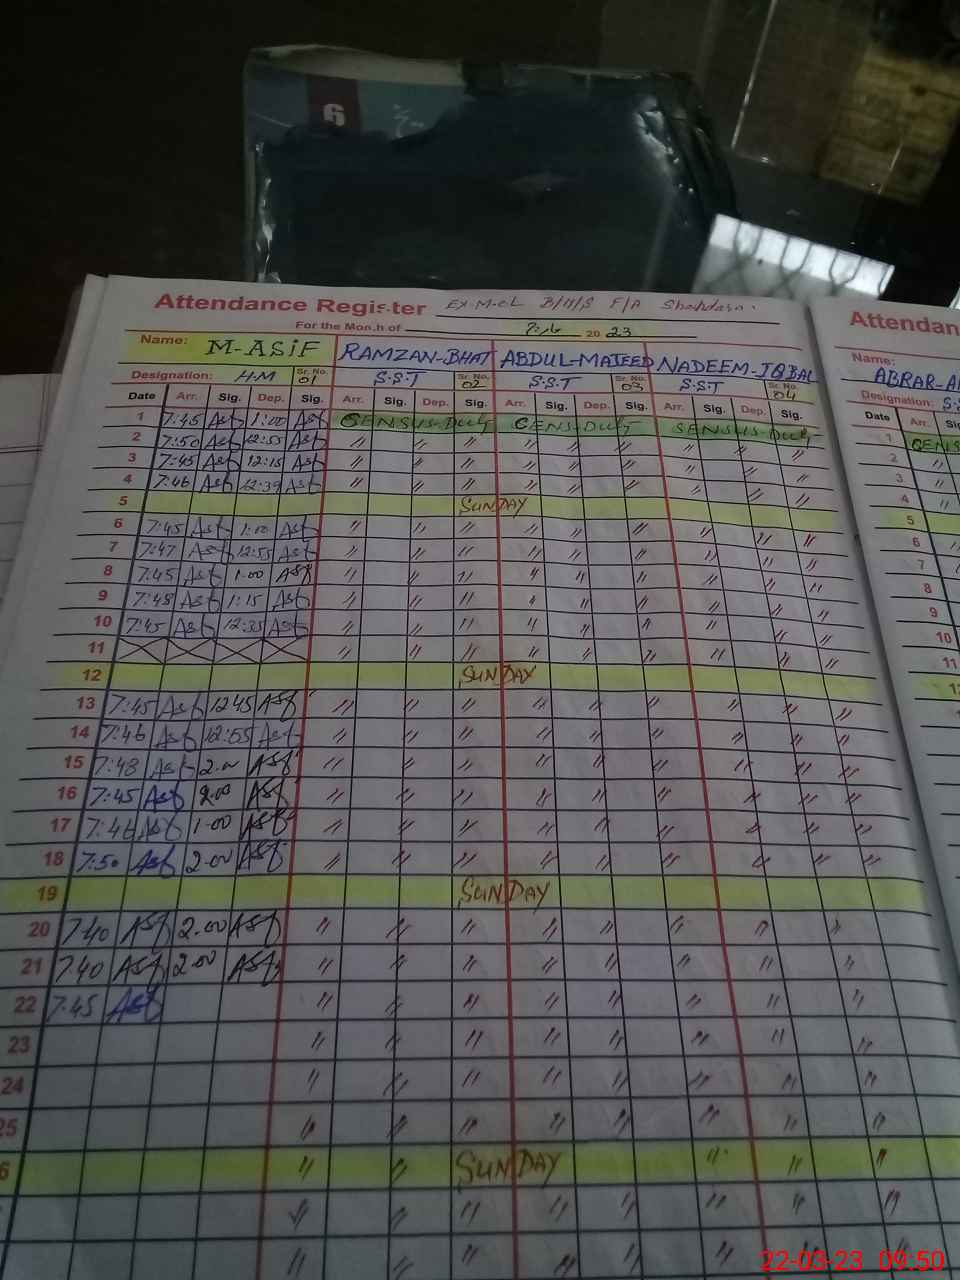 6
Attendance Register Ex-M-CL B/H/S F/A Shahdara.
For the Month of 2023
Name: M-ASiF RAMZAN-BHAT ABDUL-MAJEED NADEEM-IQBAL
Designation: H-M Sr. No. 01 S.S.T Sr. No. 02 S.S.T Sr. No. 03 S.S.T Sr. No. 04
Date Arr. Sig. Dep. Sig. Arr. Sig. Dep. Sig. Arr. Sig. Dep. Sig. Arr. Sig. Dep. Sig.
1 7:45 Asf 1:00 Asf CENSUS-DUTY CENS-DUTY SENSUS-DUTY
2 7:50 Asf 12:55 Asf 〃 〃 〃 〃 〃 〃 〃 〃 〃
3 7:45 Asf 12:15 Asf 〃 〃 〃 〃 〃 〃 〃 〃 〃
4 7:46 Asf 12:39 Asf 〃 〃 〃 〃 〃 〃 〃 〃 〃
5 SUNDAY
6 7:45 Asf 1:00 Asf 〃 〃 〃 〃 〃 〃 〃 〃 〃
7 7:47 Asf 12:55 Asf 〃 〃 〃 〃 〃 〃 〃 〃 〃
8 7:45 Asf 1:00 Asf 〃 〃 〃 〃 〃 〃 〃 〃 〃
9 7:48 Asf 1:15 Asf 〃 〃 〃 〃 〃 〃 〃 〃 〃
10 7:45 Asf 12:35 Asf 〃 〃 〃 〃 〃 〃 〃 〃 〃
11 〃 〃 〃 〃 〃 〃 〃 〃 〃
12 SUNDAY
13 7:45 Asf 1245 Asf 〃 〃 〃 〃 〃 〃 〃 〃 〃
14 7:46 Asf 12:55 Asf 〃 〃 〃 〃 〃 〃 〃 〃 〃
15 7:48 Asf 2.00 Asf 〃 〃 〃 〃 〃 〃 〃 〃 〃
16 7:45 Asf 2.00 Asf 〃 〃 〃 〃 〃 〃 〃 〃 〃
17 7:46 Asf 1.00 Asf 〃 〃 〃 〃 〃 〃 〃 〃 〃
18 7:50 Asf 2.00 Asf 〃 〃 〃 〃 〃 〃 〃 〃 〃
19 SUNDAY
20 7:40 Asf 2.00 Asf 〃 〃 〃 〃 〃 〃 〃 〃 〃
21 7:40 Asf 2.00 Asf 〃 〃 〃 〃 〃 〃 〃 〃 〃
22 7:45 Asf 〃 〃 〃 〃 〃 〃 〃 〃 〃
23 〃 〃 〃 〃 〃 〃 〃 〃 〃
24 〃 〃 〃 〃 〃 〃 〃 〃 〃
25 〃 〃 〃 〃 〃 〃 〃 〃 〃
6 〃 〃 SUNDAY 〃 〃 〃
〃 〃 〃 〃 〃 〃 〃 〃
〃 〃 〃 〃 〃 〃 〃 〃
Attendan
Name:
ABRAR-A
Designation: S.S
Date Arr. Sig
1 CENS
2 〃
3 〃
4 〃
5
6 〃
7
8
9
10
11
22-03-23 09:50